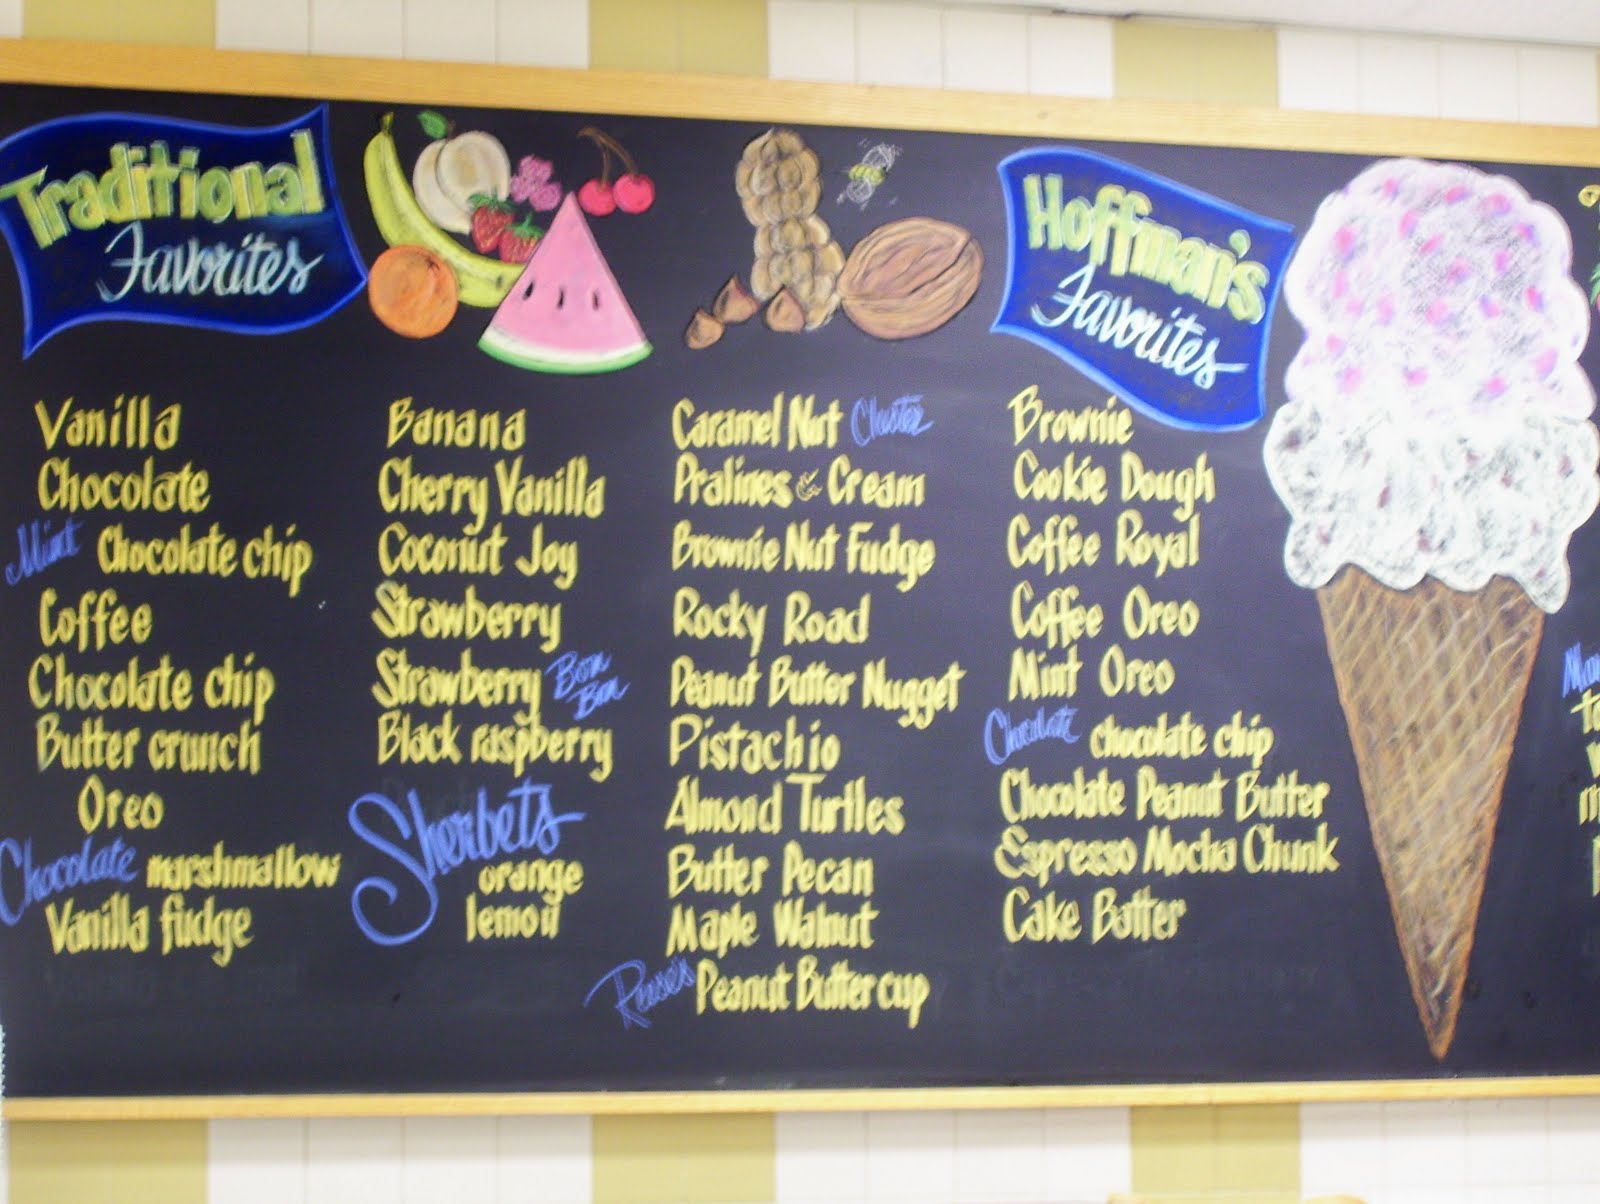 Traditional
Favorites
Vanilla
Chocolate
Mint Chocolate chip
Coffee
Chocolate chip
Butter crunch
Oreo
Chocolate marshmallow
Vanilla fudge
Banana
Cherry Vanilla
Coconut Joy
Strawberry
Strawberry Bon Bon
Black raspberry
Sherbets
orange
lemon
Caramel Nut Cluster
Pralines & Cream
Brownie Nut Fudge
Rocky Road
Peanut Butter Nugget
Pistachio
Almond Turtles
Butter Pecan
Maple Walnut
Reese's Peanut Butter cup
Hoffman's
Favorites
Brownie
Cookie Dough
Coffee Royal
Coffee Oreo
Mint Oreo
Chocolate chocolate chip
Chocolate Peanut Butter
Espresso Mocha Chunk
Cake Batter